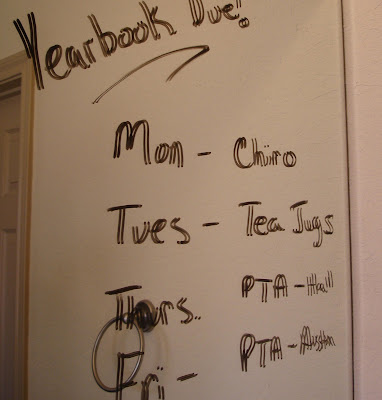 Yearbook Due!
Mon - Chiro
Tues - Tea Jugs
Thurs.. PTA - Hall
Fri - PTA -